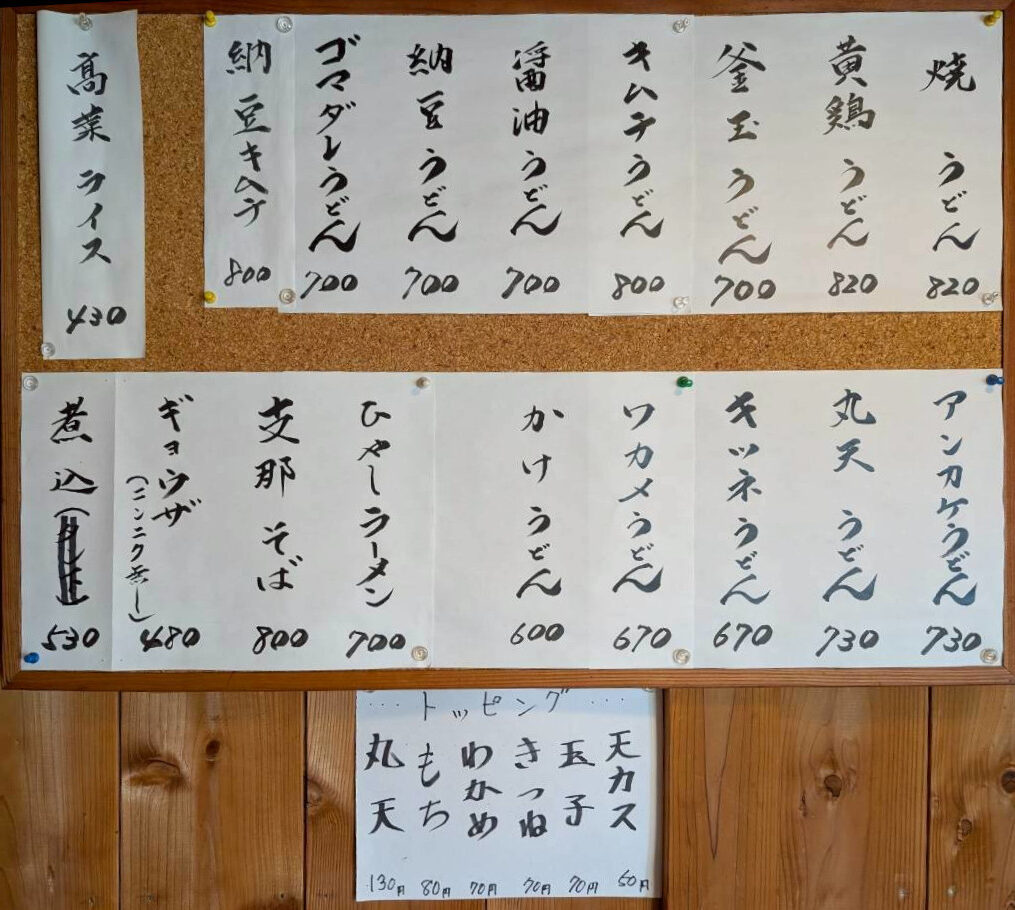 焼うどん 820
黄鶏うどん 820
釜玉うどん 700
キムチうどん 800
醤油うどん 700
納豆うどん 700
ゴマダレうどん 700
納豆キムチ 800
高菜ライス 430
アンカケうどん 730
丸天うどん 730
キツネうどん 670
ワカメうどん 670
かけうどん 600
ひやしラーメン 700
支那そば 800
ギョウザ
(ニンニク無し) 480
煮込 530
トッピング
天カス 50円
玉子 70円
きつね 70円
わかめ 70円
もち 80円
丸天 130円